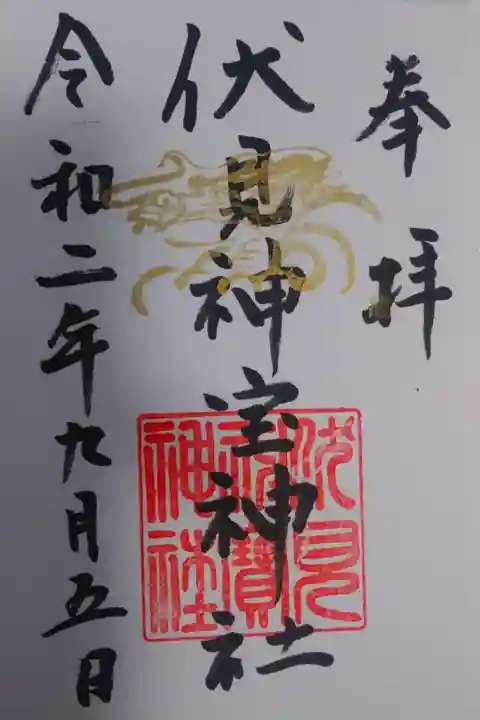 奉拝
伏見神宝神社
伏見神寶神社
令和二年九月五日